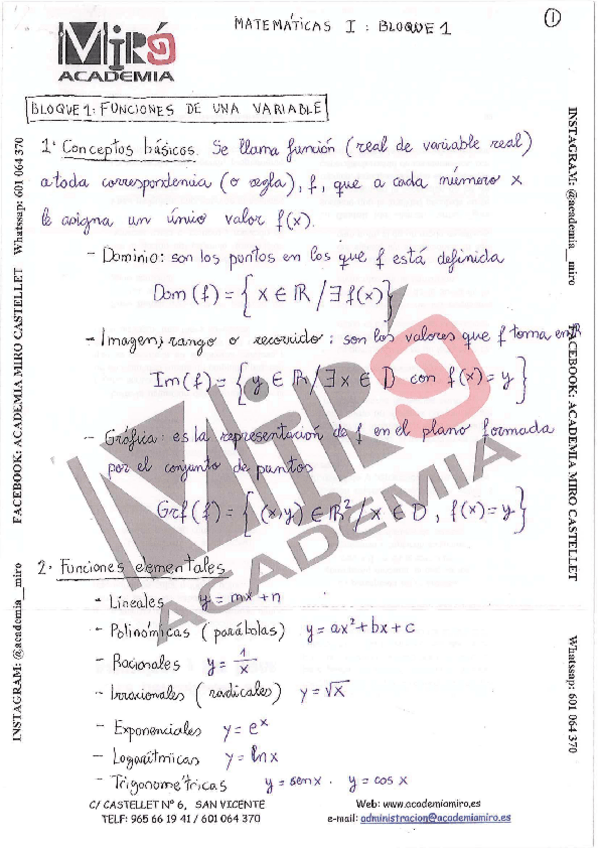 MIRÓ
ACADEMIA
MATEMÁTICAS I : BLOQUE 1
1
BLOQUE 1: FUNCIONES DE UNA VARIABLE
1. Conceptos básicos. Se llama función (real de variable real)
a toda correspondencia (o regla), f, que a cada número x
le asigna un único valor f(x).
- Dominio: son los puntos en los que f está definida
Dom (f) = { x ∈ ℝ / ∃ f(x) }
- Imagen, rango o recorrido : son los valores que f toma en
Im(f) = { y ∈ ℝ / ∃ x ∈ D con f(x) = y }
- Gráfica : es la representación de f en el plano formada
por el conjunto de puntos
Grf (f) = { (x,y) ∈ ℝ² / x ∈ D , f(x) = y }
2. Funciones elementales
- Lineales y = mx + n
- Polinómicas (parábolas) y = ax² + bx + c
- Racionales y = 1/x
- Irracionales (radicales) y = √x
- Exponenciales y = eˣ
- Logarítmicas y = ln x
- Trigonométricas y = sen x . y = cos x
C/ CASTELLET Nº 6, SAN VICENTE
TELF: 965 66 19 41 / 601 064 370
Web: www.academiamiro.es
e-mail: administracion@academiamiro.es
INSTAGRAM: @academia_miro FACEBOOK: ACADEMIA MIRO CASTELLET Whatssap: 601 064 370
INSTAGRAM: @academia__miro FACEBOOK: ACADEMIA MIRO CASTELLET Whatssap: 601 064 370
MIRÓ
ACADEMIA